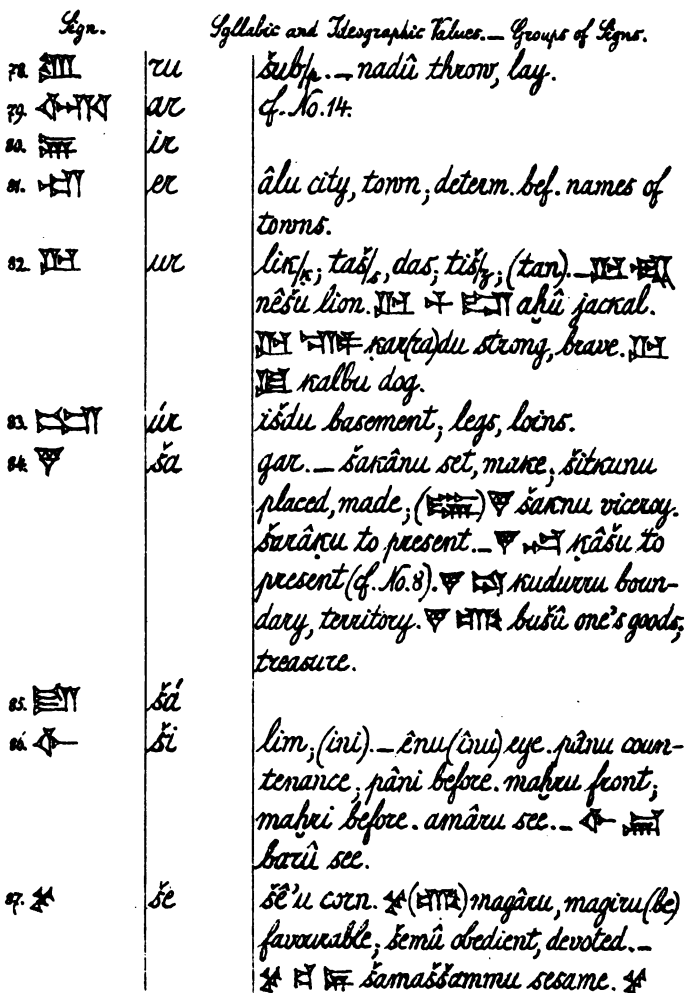 Sign. Syllabic and Ideographic Values. — Groups of Signs.
78. 𒊒 ru šub/p. — nadû throw, lay.
79. 𒅈 ar cf. No. 14.
80. 𒅕 ir
81. 𒌷 er âlu city, town; determ. bef. names of
towns.
82. 𒌨 ur lik/ḳ; taš/s, das; tiš/z; (tan). — 𒌨 𒈤
nêšu lion. 𒌨 𒁇 𒊏 aḫû jackal.
𒌨 𒊕 ḳar(ra)du strong, brave. 𒌨
𒆪 kalbu dog.
83. 𒌫 úr išdu basement; legs, loins.
84. 𒃻 ša gar. — šakânu set, make; šitkunu
placed, made; ( ) 𒃻 šaknu viceroy.
šarâḳu to present. — 𒃻 𒁀 ḳâšu to
present (cf. No. 8). 𒃻 𒁺 kudurru boun-
dary, territory. 𒃻 𒂵 bušû one's goods;
treasure.
85. 𒊭 šá
86. 𒅆 ši lim; (ini). — ênu (înu) eye. pânu coun-
tenance; pâni before. maḫru front;
maḫri before. amâru see. — 𒅆 𒃮
barû see.
87. 𒊺 še šê'u corn. 𒊺 (𒂵) magâru, magiru (be)
favourable; šemû obedient, devoted. —
𒊺 𒄑 𒉌 šamaššammu sesame. 𒊺